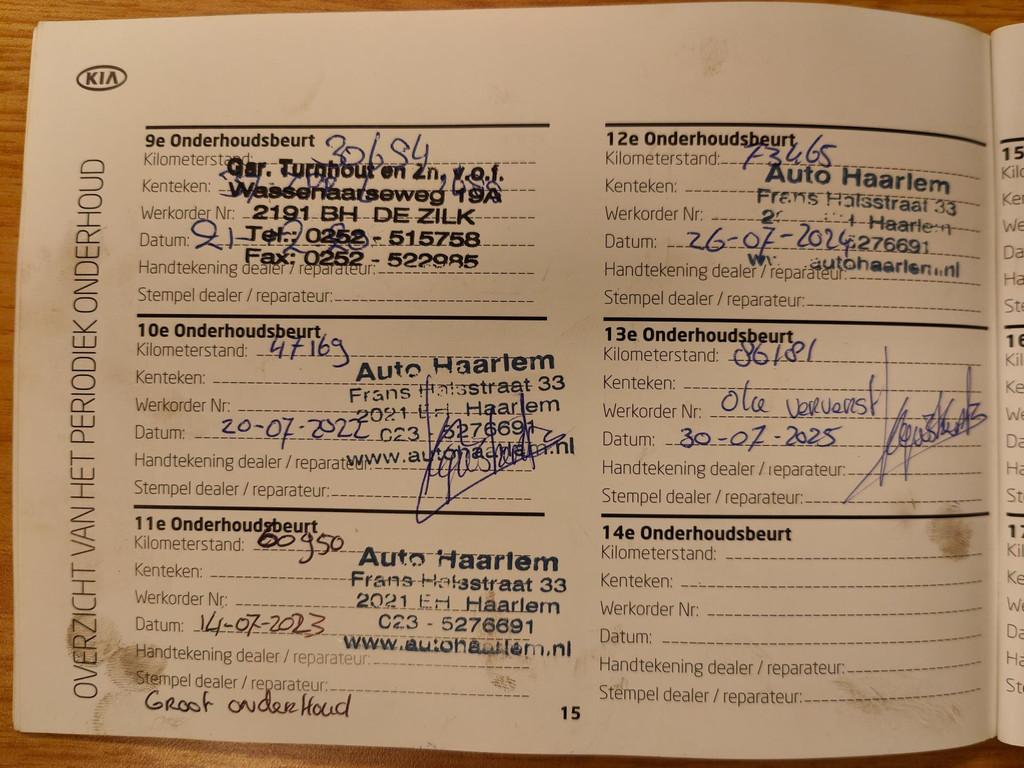 KIA
OVERZICHT VAN HET PERIODIEK ONDERHOUD
9e Onderhoudsbeurt
Kilometerstand: 30694
Gar. Turnhout en Zn. v.o.f.
Kenteken:
Wassenaarseweg 19A
Werkorder Nr: 2191 BH DE ZILK
Datum: 21-
Tel.: 0252 - 515758
Fax: 0252 - 522985
Handtekening dealer / reparateur:
Stempel dealer / reparateur:
10e Onderhoudsbeurt
Kilometerstand: 47169
Auto Haarlem
Kenteken:
Frans Halsstraat 33
Werkorder Nr:
2021 EH Haarlem
Datum: 20-07-2022
023 - 5276691
Handtekening dealer / reparateur:
www.autohaarlem.nl
Stempel dealer / reparateur:
11e Onderhoudsbeurt
Kilometerstand: 60950
Auto Haarlem
Kenteken:
Frans Halsstraat 33
Werkorder Nr:
2021 EH Haarlem
Datum: 14-07-2023
023 - 5276691
www.autohaarlem.nl
Handtekening dealer / reparateur:
Stempel dealer / reparateur:
Groot onderHoud
12e Onderhoudsbeurt
Kilometerstand: 73465
Auto Haarlem
Kenteken:
Frans Halsstraat 33
Werkorder Nr:
Haarlem
Datum: 26-07-2024
5276691
autohaarlem.nl
Handtekening dealer / reparateur:
Stempel dealer / reparateur:
13e Onderhoudsbeurt
Kilometerstand: 86181
Kenteken:
Werkorder Nr: Olie ververst
Datum: 30-07-2025
Handtekening dealer / reparateur:
Stempel dealer / reparateur:
14e Onderhoudsbeurt
Kilometerstand:
Kenteken:
Werkorder Nr:
Datum:
Handtekening dealer / reparateur:
Stempel dealer / reparateur:
15